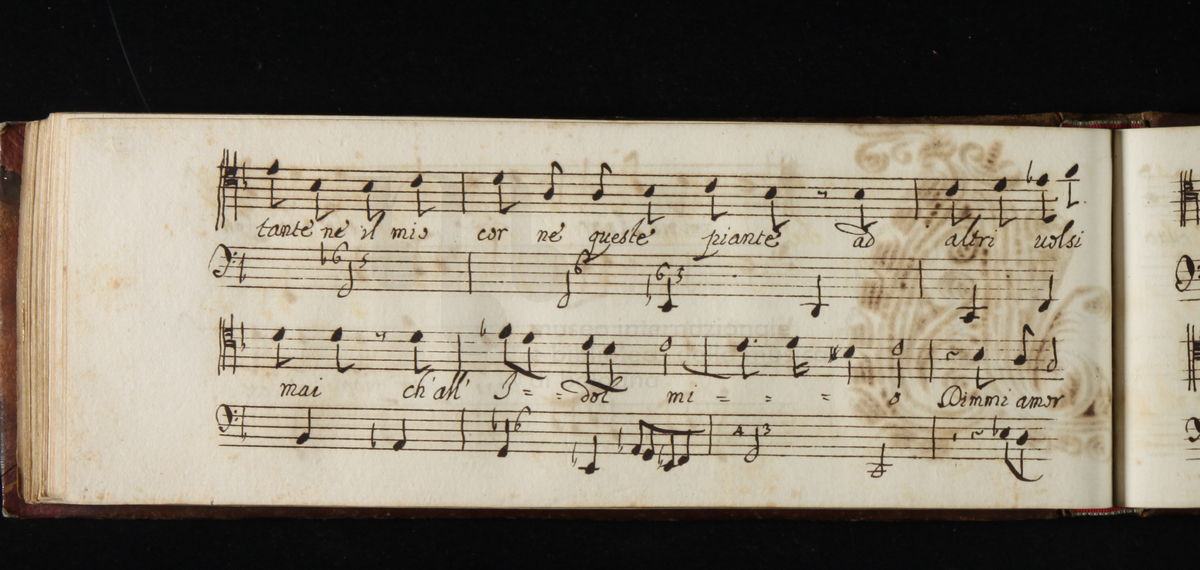 tante ne il mio cor ne queste piante ad altri uolsi
♭6 5 6 6 5
mai ch'all' I = = dol mi = = = o Dimmi amor
6 4 3